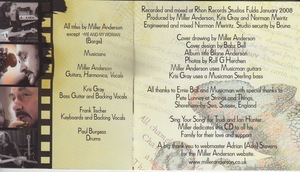 All titles by Miller Anderson
except -ME AND MY WOMAN
(Barge)
Musicians
Miller Anderson
Guitars, Harmonica, Vocals
Kris Gray
Bass Guitar and Backing Vocals
Frank Tischer
Keyboards and Backing Vocals
Paul Burgess
Drums
Recorded and mixed at Rhon Records Studios Fulda January 2008
Produced by Miller Anderson, Kris Gray and Norman Meiritz
Engineered and mixed Norman Meiritz. Studio security by Bruno.
Cover drawing by Miller Anderson
Cover design by Babz Bell
Album title Blane Anderson
Photos by Rolf G Herchen
Miller Anderson uses Musicman guitars
Kris Gray uses a Musicman Sterling bass
All thanks to Ernie Ball and Musicman with special thanks to
Pete Lonney at Strings and Things,
Shoreham-by-Sea, Sussex, England
Sing Your Song for Trudi and Ian Hunter
Miller dedicates this CD to all his
Family for their love and support
A big thank you to webmaster Adrian (Ads) Stevens
for the Miller Anderson website.
www.milleranderson.co.uk